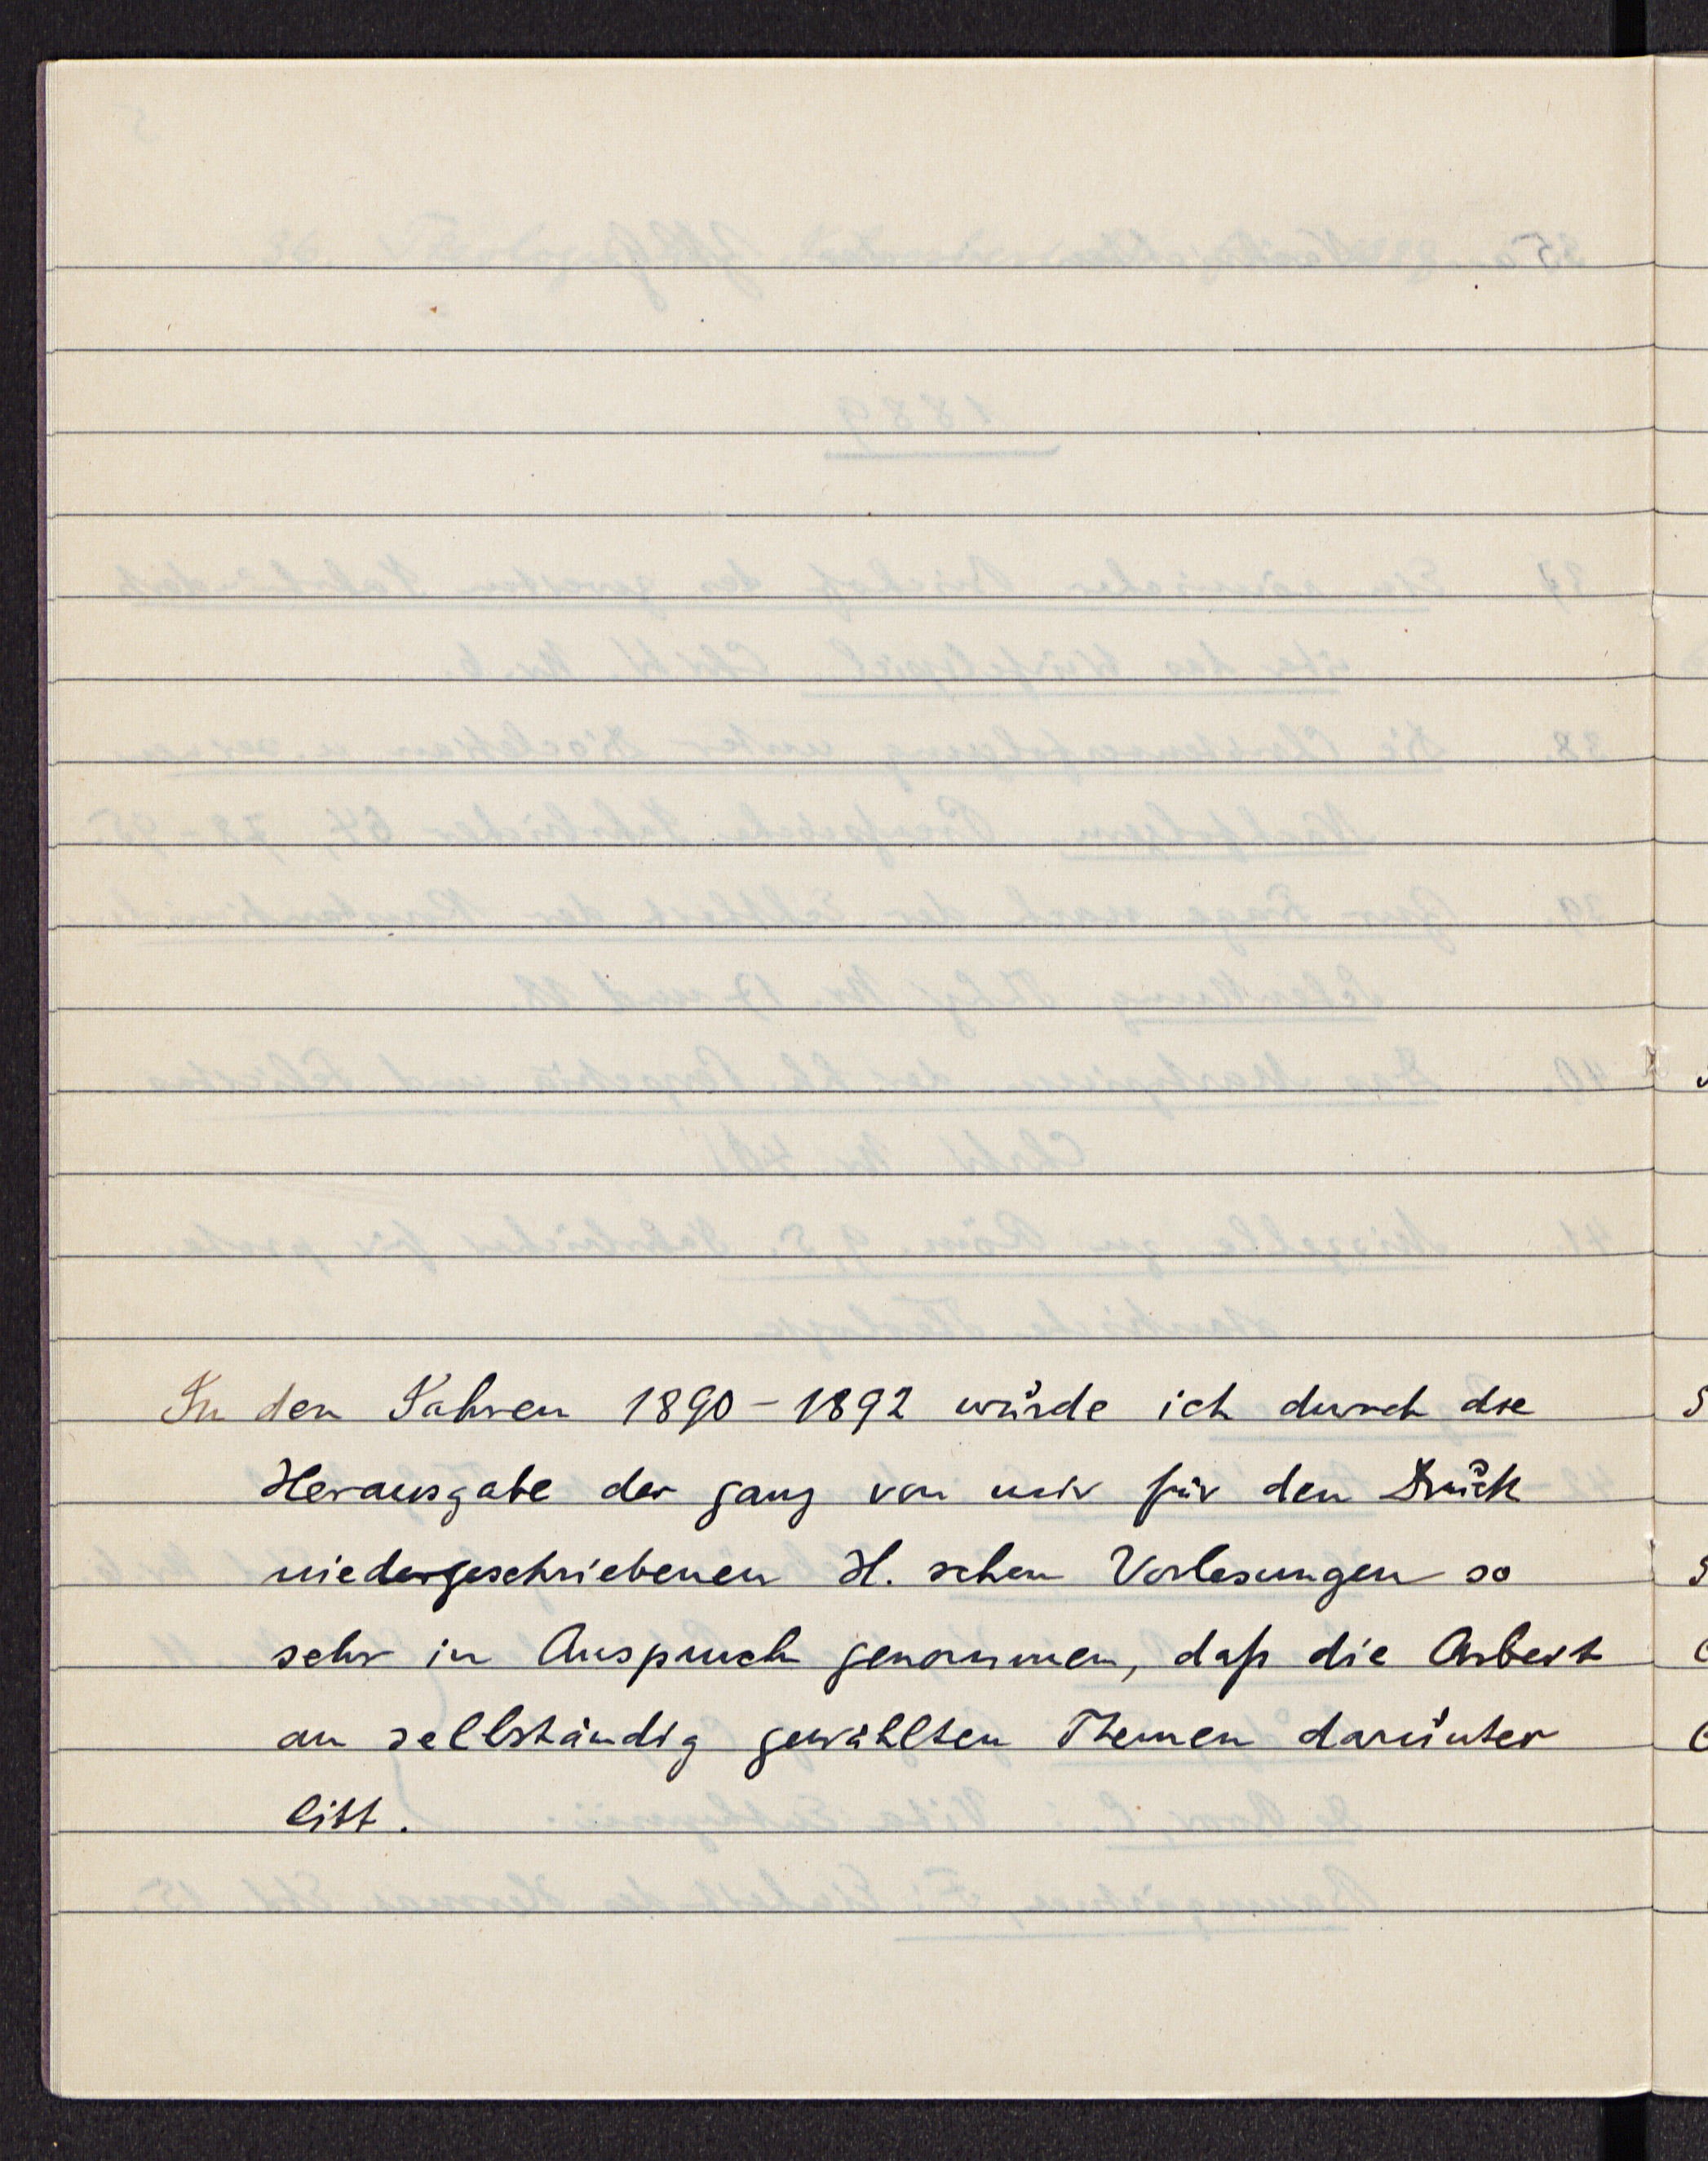 In den Jahren 1890-1892 wurde ich durch die
Herausgabe der ganz von mir für den Druck
niedergeschriebenen H. schen Vorlesungen so
sehr in Anspruch genommen, daß die Arbeit
an selbständig gewählten Themen darunter
litt.